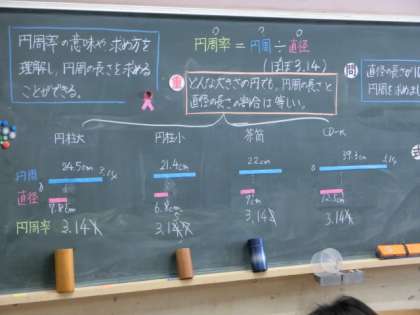 円周率の意味や求め方を
理解し、円周の長さを求める
ことができる。
円周率=円周÷直径
(ほぼ3.14)
どんな大きさの円でも、円周の長さと
直径の長さの割合は等しい。
問
直径の長さが
円周を求めま
円柱大
円柱小
茶筒
CDケ
円周
24.5cm
21.4cm
22cm
39.3cm
直径
7.8cm
6.8cm
7cm
12.5cm
円周率
3.14
3.14
3.14
3.14